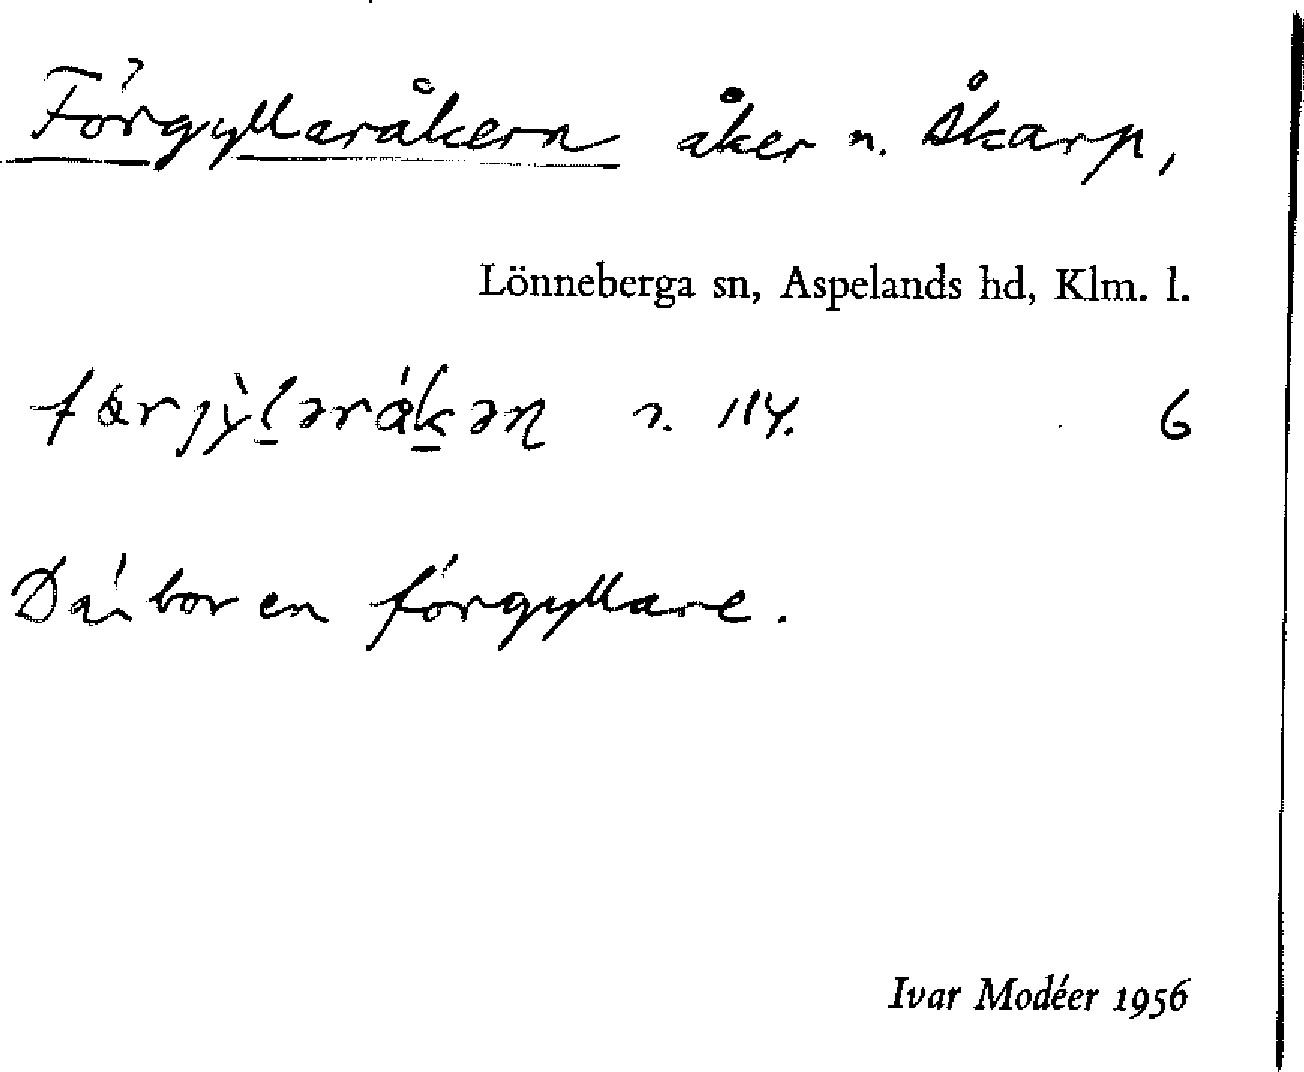 Förgyllaråkern åker n. Åkarp,
Lönneberga sn, Aspelands hd, Klm. l.
6
Där bor en förgyllare.
Ivar Modéer 1956